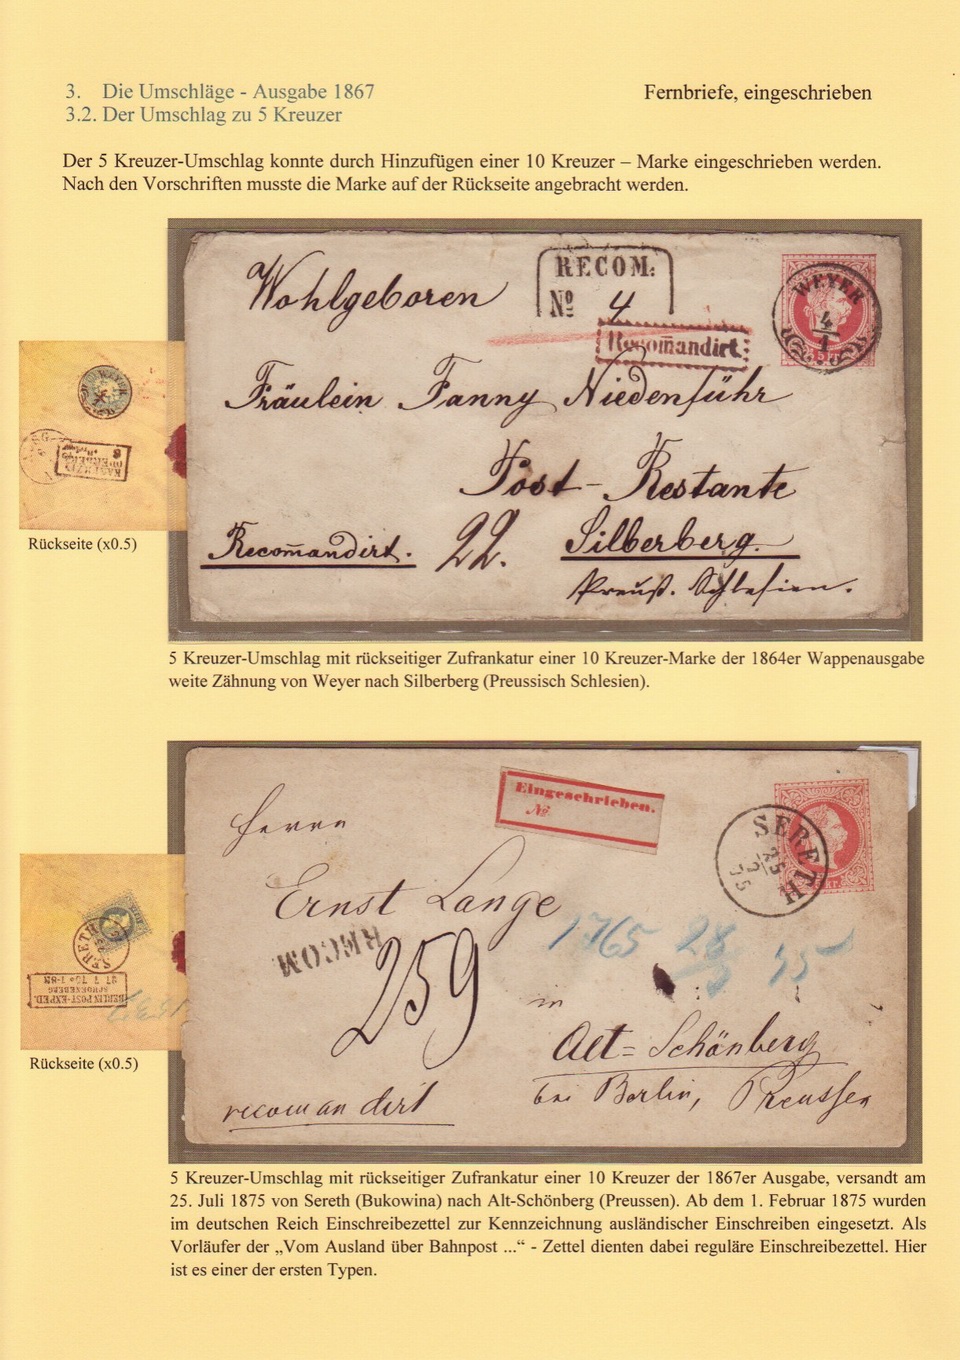 3. Die Umschläge - Ausgabe 1867
Fernbriefe, eingeschrieben
3.2. Der Umschlag zu 5 Kreuzer
Der 5 Kreuzer-Umschlag konnte durch Hinzufügen einer 10 Kreuzer – Marke eingeschrieben werden.
Nach den Vorschriften musste die Marke auf der Rückseite angebracht werden.
RECOM:
No 4
WEYER
4/1
Recomandirt.
Wohlgeboren
Fräulein Fanny Niedenführ
Post-Restante
Silberberg.
Recomandirt. 22.
Preuß. Schlesien.
Rückseite (x0.5)
5 Kreuzer-Umschlag mit rückseitiger Zufrankatur einer 10 Kreuzer-Marke der 1864er Wappenausgabe
weite Zähnung von Weyer nach Silberberg (Preussisch Schlesien).
Eingeschrieben.
No.
SERETH
25
75
Herrn
Ernst Lange
RECOM
259
1765 28
in
Alt=Schönberg
bei Berlin, Preussen
recomandirt
SERETH
BERLIN POST-EXPED.
SCHOENEBERG
27 7 75 7-8N
Rückseite (x0.5)
5 Kreuzer-Umschlag mit rückseitiger Zufrankatur einer 10 Kreuzer der 1867er Ausgabe, versandt am
25. Juli 1875 von Sereth (Bukowina) nach Alt-Schönberg (Preussen). Ab dem 1. Februar 1875 wurden
im deutschen Reich Einschreibezettel zur Kennzeichnung ausländischer Einschreiben eingesetzt. Als
Vorläufer der „Vom Ausland über Bahnpost ...“ - Zettel dienten dabei reguläre Einschreibezettel. Hier
ist es einer der ersten Typen.